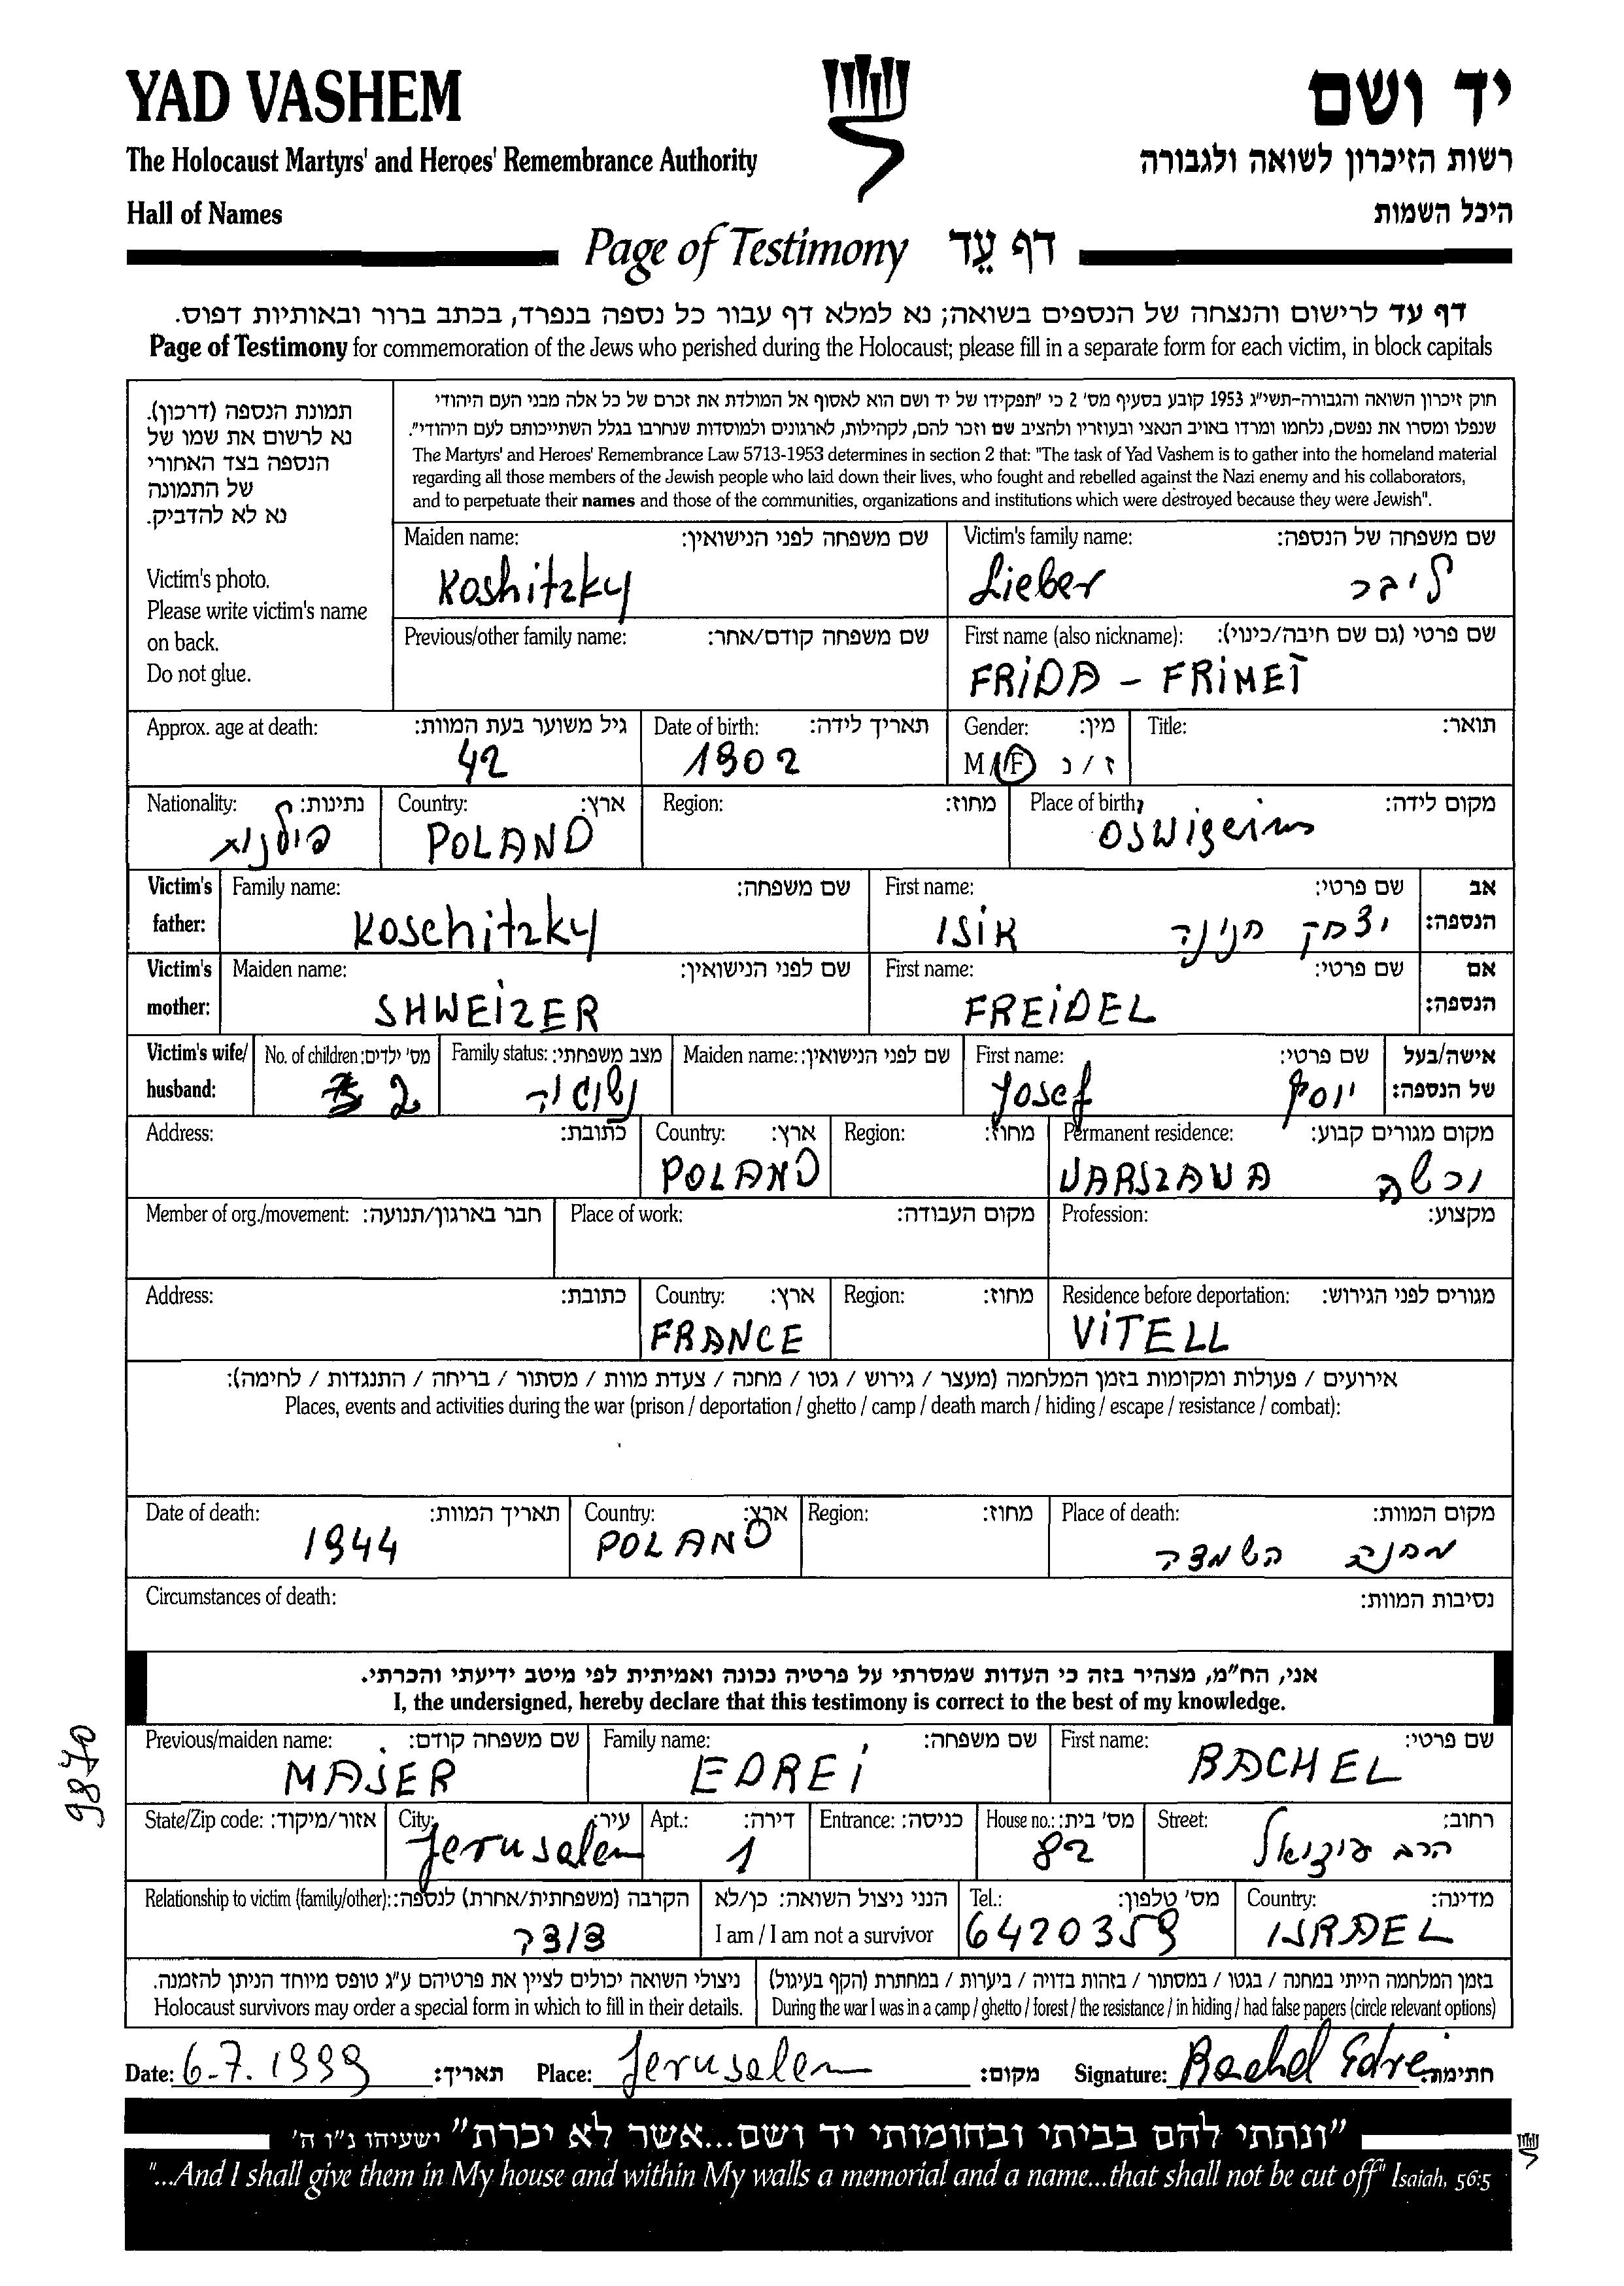 YAD VASHEM
יד ושם
The Holocaust Martyrs' and Heroes' Remembrance Authority
רשות הזיכרון לשואה ולגבורה
Hall of Names
היכל השמות
Page of Testimony דף עֵד
דף עד לרישום והנצחה של הנספים בשואה; נא למלא דף עבור כל נספה בנפרד, בכתב ברור ובאותיות דפוס.
Page of Testimony for commemoration of the Jews who perished during the Holocaust; please fill in a separate form for each victim, in block capitals
תמונת הנספה (דרכון).
נא לרשום את שמו של
הנספה בצד האחורי
של התמונה
נא לא להדביק.
Victim's photo.
Please write victim's name
on back.
Do not glue.
חוק זיכרון השואה והגבורה-תשי"ג 1953 קובע בסעיף מס' 2 כי "תפקידו של יד ושם הוא לאסוף אל המולדת את זכרם של כל אלה מבני העם היהודי
שנפלו ומסרו את נפשם, נלחמו ומרדו באויב הנאצי ובעוזריו ולהציב שם וזכר להם, לקהילות, לארגונים ולמוסדות שנחרבו בגלל השתייכותם לעם היהודי".
The Martyrs' and Heroes' Remembrance Law 5713-1953 determines in section 2 that: "The task of Yad Vashem is to gather into the homeland material
regarding all those members of the Jewish people who laid down their lives, who fought and rebelled against the Nazi enemy and his collaborators,
and to perpetuate their names and those of the communities, organizations and institutions which were destroyed because they were Jewish".
Maiden name: שם משפחה לפני הנישואין: Victim's family name: שם משפחה של הנספה:
Koshitzky Lieber ליבר
Previous/other family name: שם משפחה קודם/אחר: First name (also nickname): שם פרטי (גם שם חיבה/כינוי):
FRIDA - FRIMET
Approx. age at death: גיל משוער בעת המוות: Date of birth: תאריך לידה: Gender: מין: Title: תואר:
42 1902 M/F ז/נ
Nationality: נתינות: Country: ארץ: Region: מחוז: Place of birth: מקום לידה:
פולנית POLAND
Victim's father: Family name: שם משפחה: First name: שם פרטי: אב הנספה:
Koschitzky ISIK יצחק חנינה
Victim's mother: Maiden name: שם לפני הנישואין: First name: שם פרטי: אם הנספה:
SHWEIZER FREIDEL
Victim's wife/husband: No. of children: מס' ילדים: Family status: מצב משפחתי: Maiden name: שם לפני הנישואין: First name: שם פרטי: אישה/בעל של הנספה:
2 נשואה Yosef יוסף
Address: כתובת: Country: ארץ: Region: מחוז: Permanent residence: מקום מגורים קבוע:
POLAND WARSZAWA ורשה
Member of org./movement: חבר בארגון/תנועה: Place of work: מקום העבודה: Profession: מקצוע:
Address: כתובת: Country: ארץ: Region: מחוז: Residence before deportation: מגורים לפני הגירוש:
FRANCE VITELL
אירועים / פעולות ומקומות בזמן המלחמה (מעצר / גירוש / גטו / מחנה / צעדת מוות / מסתור / בריחה / התנגדות / לחימה):
Places, events and activities during the war (prison / deportation / ghetto / camp / death march / hiding / escape / resistance / combat):
Date of death: תאריך המוות: Country: ארץ: Region: מחוז: Place of death: מקום המוות:
1944 POLAND מחנה השמדה
Circumstances of death: נסיבות המוות:
אני, הח"מ, מצהיר בזה כי העדות שמסרתי על פרטיה נכונה ואמיתית לפי מיטב ידיעתי והכרתי.
I, the undersigned, hereby declare that this testimony is correct to the best of my knowledge.
Previous/maiden name: שם משפחה קודם: Family name: שם משפחה: First name: שם פרטי:
MAJER EDREI RACHEL
State/Zip code: אזור/מיקוד: City: עיר: Apt.: דירה: Entrance: כניסה: House no.: מס' בית: Street: רחוב:
Jerusalem 1 82 הרב עוזיאל
Relationship to victim (family/other): הקרבה (משפחתית/אחרת) לנספה: הנני ניצול השואה: כן/לא Tel.: מס' טלפון: Country: מדינה:
דודה I am / I am not a survivor 6420359 ISRAEL
ניצולי השואה יכולים לציין את פרטיהם ע"ג טופס מיוחד הניתן להזמנה. בזמן המלחמה הייתי במחנה / בגטו / במסתור / בזהות בדויה / ביערות / במחתרת (הקף בעיגול)
Holocaust survivors may order a special form in which to fill in their details. During the war I was in a camp / ghetto / forest / the resistance / in hiding / had false papers (circle relevant options)
Date: 6.7.1999 תאריך: Place: Jerusalem מקום: Signature: Rachel Edrei חתימה:
"ונתתי להם בביתי ובחומותי יד ושם...אשר לא יכרת" ישעיהו נ"ו ה'
"...And I shall give them in My house and within My walls a memorial and a name...that shall not be cut off" Isaiah, 56:5
9870